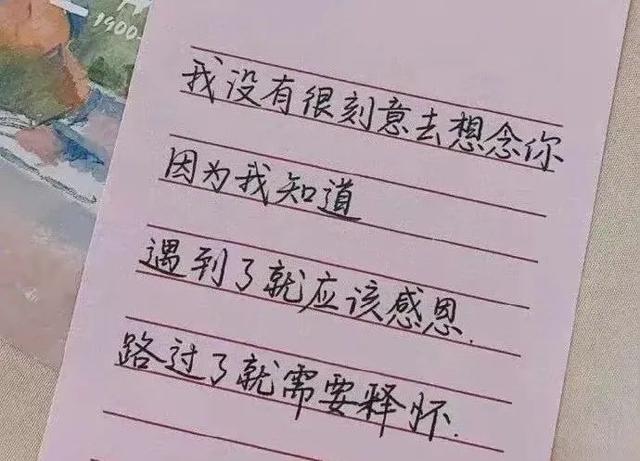 1900-
我没有很刻意去想念你
因为我知道
遇到了就应该感恩.
路过了就需要释怀.